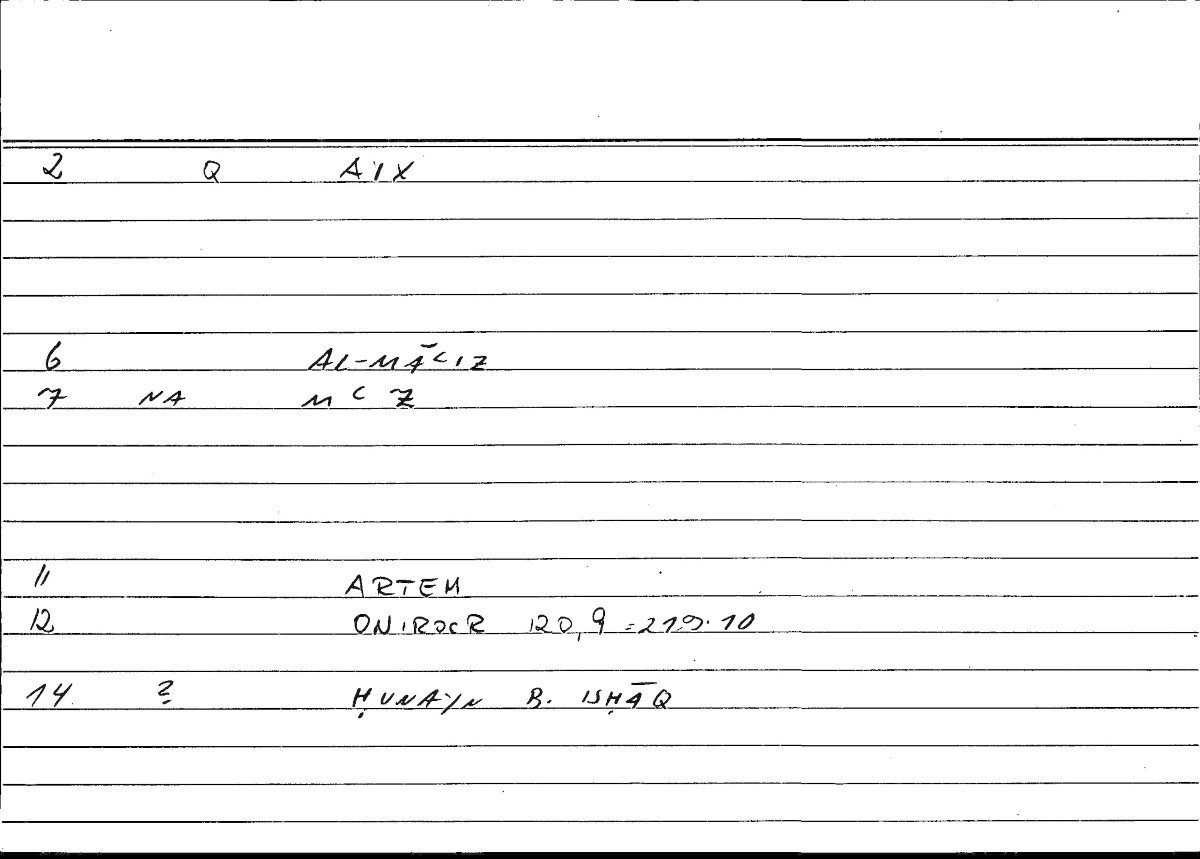 2 Q AIX
6 AL-MĀʿIZ
7 NA MʿZ
11 ARTEM
12 ONIROCR 120,9 = 219.10
14 ? ḤUNAYN B. ISḤĀQ